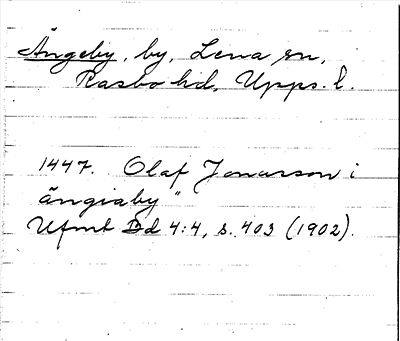 Ängeby, by, Lena sn,
Rasbo hd, Upps. l.
1447. Olaf Jonasson i
ängiaby"
Ufmt Bd 4:4, s. 403 (1902).